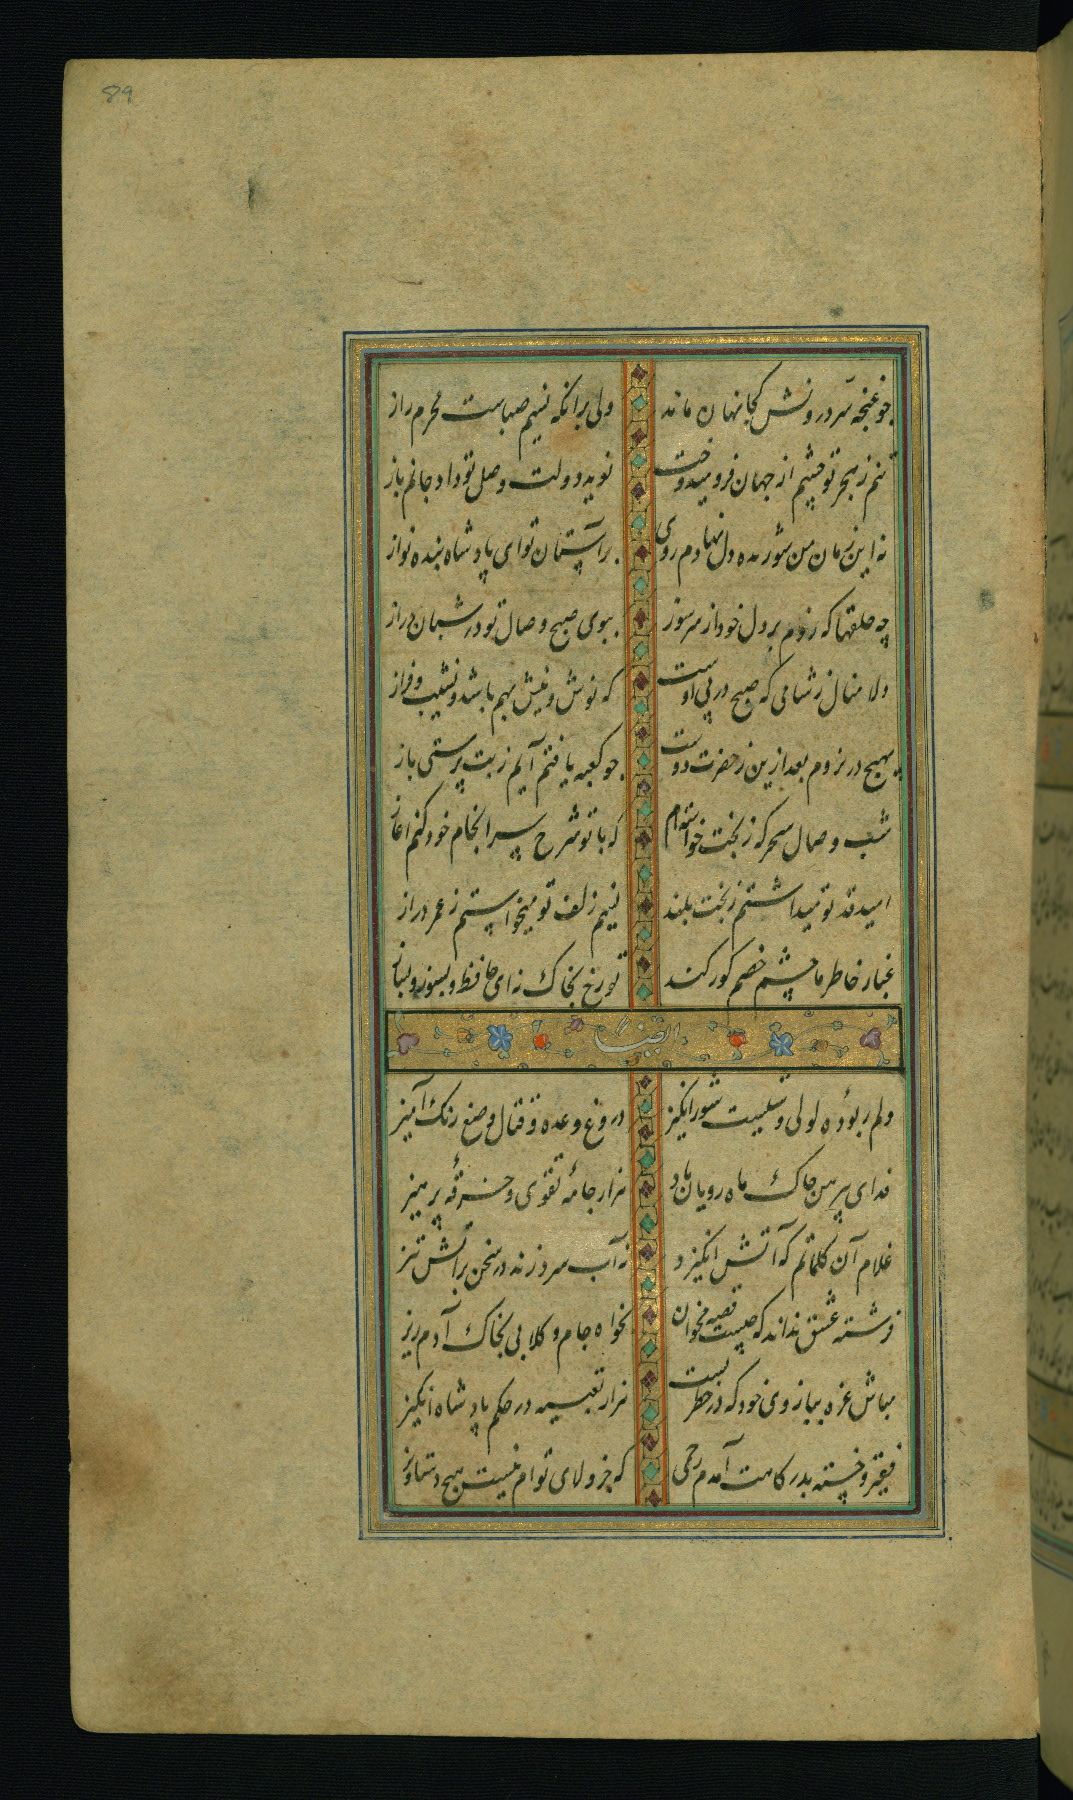 89
چو غنچه سر درونش کجا نهان ماند ولی برانکه نسیم صباست محرم راز
تنم ز هجر تو چشم از جهان فرو میدوخت نوید دولت وصل تو داد جانم باز
نه این زمان من شوریده دل نهادم روی بر آستان تو ای پادشاه بنده نواز
چه حلقها که زدم بر دل خود از سر سوز ببوی صبح وصال تو در شبان دراز
دلا منال ز شامی که صبح در پی اوست که نوش و نیش بهم باشد و نشیب و فراز
بهیچ در نروم بعد ازین ز حضرت دوست چو کعبه یافتم آیم ز بت پرستی باز
شب وصال سحرکه ز بخت خواسته‌ام که با تو شرح سرانجام خود کنم اغاز
امید قد تو میداشتم ز بخت بلند نسیم زلف تو میخواستم ز عمر دراز
غبار خاطر ما چشم خصم کور کند تو رخ بخاک نه ای حافظ و بسوز و بساز
ایضا
دلم ربوده لولی وشیست شورانکیز دروغ وعده و قتال وضع رنک آمیز
فدای پیرهن چاک ماه رویان باد هزار جامه تقوی و خرقه پرهیز
غلام آن کلماتم که آتش انکیزد نه آب سرد زند در سخن بر آتش تیز
فرشته عشق نداند که چیست قصه مخوان بخواه جام و کلابی بخاک آدم ریز
مباش غره ببازوی خود که در خطرست هزار تعبیه در حکم پادشاه انکیز
فقیر و خسته بدرکاهت آمدم رحمی که جز ولای توام نیست هیچ دستاویز